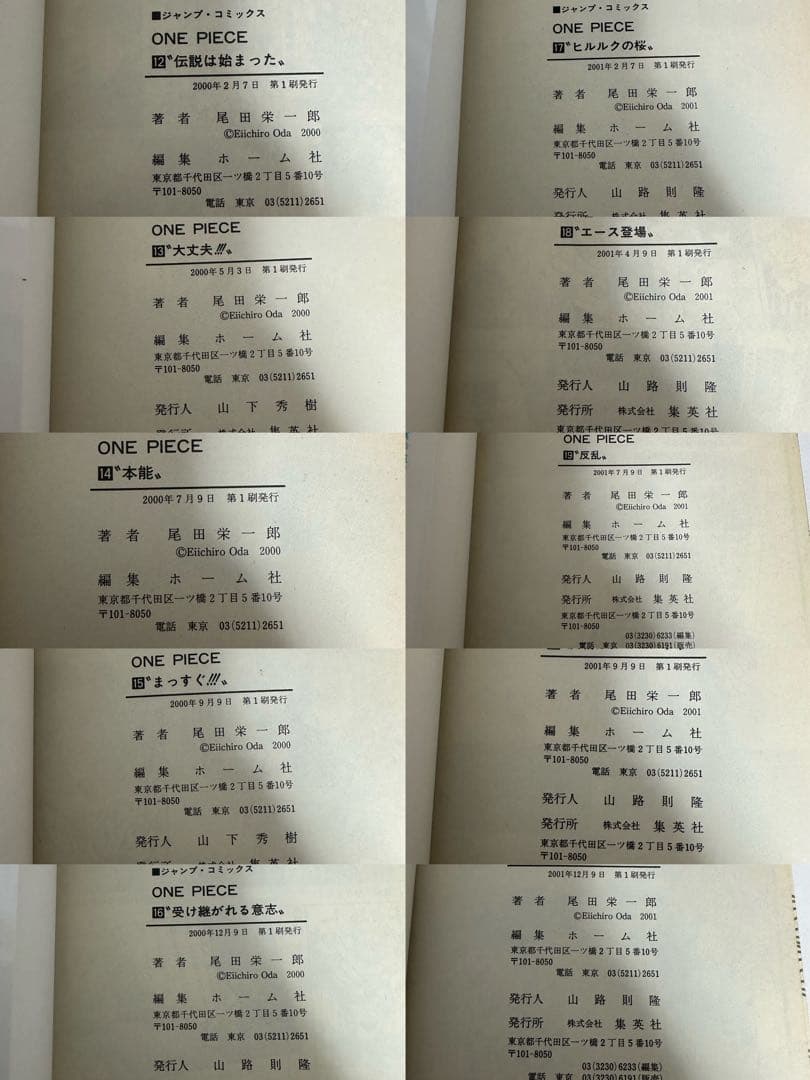 ■ジャンプ・コミックス
ONE PIECE
12〝伝説は始まった〟
2000年2月7日 第1刷発行
著者 尾田栄一郎
©Eiichiro Oda 2000
編集 ホーム社
東京都千代田区一ツ橋2丁目5番10号
〒101-8050
電話 東京 03(5211)2651
ONE PIECE
13〝大丈夫!!!〟
2000年5月3日 第1刷発行
著者 尾田栄一郎
©Eiichiro Oda 2000
編集 ホーム社
東京都千代田区一ツ橋2丁目5番10号
〒101-8050
電話 東京 03(5211)2651
発行人 山下秀樹
ONE PIECE
14〝本能〟
2000年7月9日 第1刷発行
著者 尾田栄一郎
©Eiichiro Oda 2000
編集 ホーム社
東京都千代田区一ツ橋2丁目5番10号
〒101-8050
電話 東京 03(5211)2651
ONE PIECE
15〝まっすぐ!!!〟
2000年9月9日 第1刷発行
著者 尾田栄一郎
©Eiichiro Oda 2000
編集 ホーム社
東京都千代田区一ツ橋2丁目5番10号
〒101-8050
電話 東京 03(5211)2651
発行人 山下秀樹
発行所 株式会社 集英社
■ジャンプ・コミックス
ONE PIECE
16〝受け継がれる意志〟
2000年12月9日 第1刷発行
著者 尾田栄一郎
©Eiichiro Oda 2000
編集 ホーム社
東京都千代田区一ツ橋2丁目5番10号
〒101-8050
電話 東京 03(5211)2651
発行人 山路則隆
■ジャンプ・コミックス
ONE PIECE
17〝ヒルルクの桜〟
2001年2月7日 第1刷発行
著者 尾田栄一郎
©Eiichiro Oda 2001
編集 ホーム社
東京都千代田区一ツ橋2丁目5番10号
〒101-8050
電話 東京 03(5211)2651
発行人 山路則隆
発行所 株式会社 集英社
18〝エース登場〟
2001年4月9日 第1刷発行
著者 尾田栄一郎
©Eiichiro Oda 2001
編集 ホーム社
東京都千代田区一ツ橋2丁目5番10号
〒101-8050
電話 東京 03(5211)2651
発行人 山路則隆
発行所 株式会社 集英社
ONE PIECE
19〝反乱〟
2001年7月9日 第1刷発行
著者 尾田栄一郎
©Eiichiro Oda 2001
編集 ホーム社
東京都千代田区一ツ橋2丁目5番10号
〒101-8050
電話 東京 03(5211)2651
発行人 山路則隆
発行所 株式会社 集英社
東京都千代田区一ツ橋2丁目5番10号
〒101-8050
03(3230)6233(編集)
電話 東京 03(3230)6191(販売)
2001年9月9日 第1刷発行
著者 尾田栄一郎
©Eiichiro Oda 2001
編集 ホーム社
東京都千代田区一ツ橋2丁目5番10号
〒101-8050
電話 東京 03(5211)2651
発行人 山路則隆
発行所 株式会社 集英社
東京都千代田区一ツ橋2丁目5番10号
2001年12月9日 第1刷発行
著者 尾田栄一郎
©Eiichiro Oda 2001
編集 ホーム社
東京都千代田区一ツ橋2丁目5番10号
〒101-8050
電話 東京 03(5211)2651
発行人 山路則隆
発行所 株式会社 集英社
東京都千代田区一ツ橋2丁目5番10号
〒101-8050
03(3230)6233(編集)
電話 東京 03(3230)6191(販売)